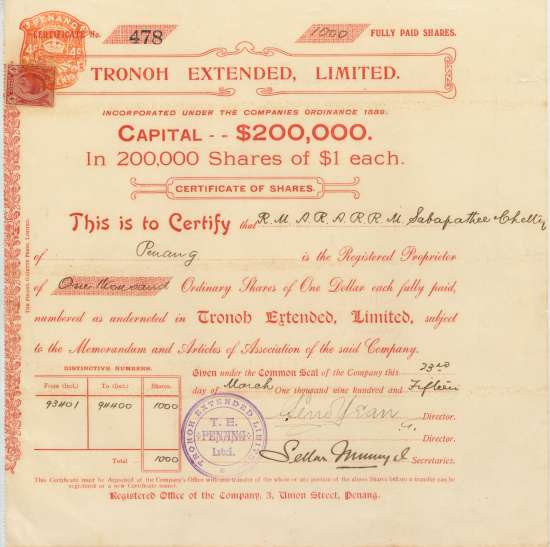 PENANG
CERTIFICATE No. 478
1000 FULLY PAID SHARES.
TRONOH EXTENDED, LIMITED.
INCORPORATED UNDER THE COMPANIES ORDINANCE 1889.
CAPITAL -- $200,000.
In 200,000 Shares of $1 each.
CERTIFICATE OF SHARES.
This is to Certify that R. M. A. R. A. R. R. M. Sabapathee Chetty
of Penang is the Registered Proprietor
of One thousand Ordinary Shares of One Dollar each fully paid,
numbered as undernoted in Tronoh Extended, Limited, subject
to the Memorandum and Articles of Association of the said Company.
DISTINCTIVE NUMBERS.
From (Incl.) To (Incl.) Shares.
93401 94400 1000
Total 1000
Given under the Common Seal of the Company this 23rd
day of March One thousand nine hundred and Fifteen
Director.
Director.
Secretaries.
TRONOH EXTENDED LIMITED
T. E.
PENANG
Ltd.
This Certificate must be deposited at the Company's Office with any transfer of the whole or any portion of the above Shares before a transfer can be
registered or a new Certificate issued.
Registered Office of the Company, 3, Union Street, Penang.
THE PENANG GAZETTE PRESS, LIMITED.